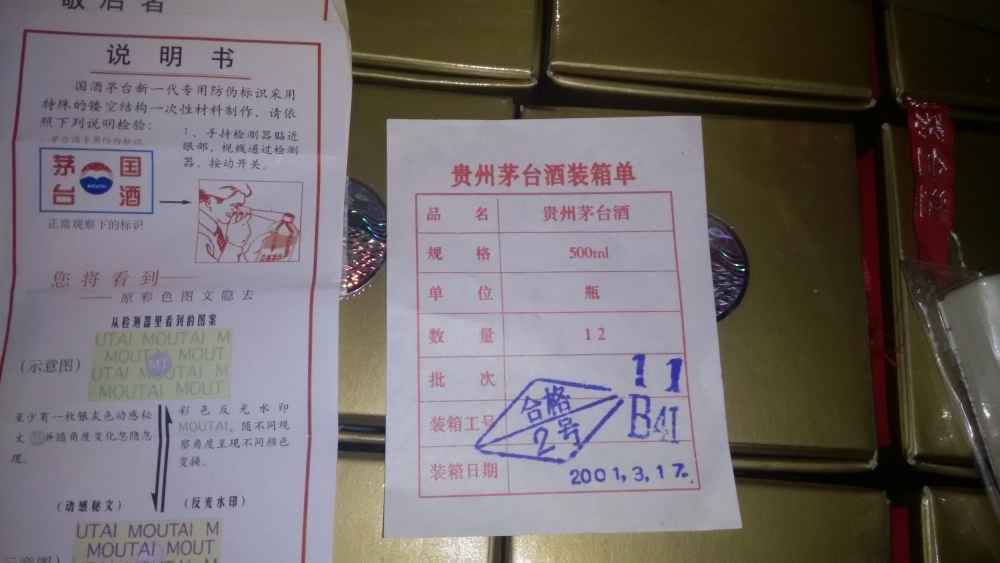 敬启者
说明书
国酒茅台新一代专用防伪标识采用
特殊的镂空结构一次性材料制作，请依
照下列说明检验：
茅台酒专用防伪标识
茅台 国酒
MOUTAI
正常观察下的标识
1、手持检测器贴近
眼部，视线通过检测
器，按动开关。
您将看到——
——原彩色图文隐去
从检测器里看到的图案
(示意图)
UTAI MOUTAI M
MOUTAI MOUT
UTAI MOUTAI M
MOUTAI MOUT
至少有一枚银灰色动感秘
文 并随角度变化忽隐忽
现。
彩色反光水印
MOUTAI，随不同观
察角度呈现不同颜色
变换。
(动感秘文)
(反光水印)
示意图)
UTAI MOUTAI M
MOUTAI MOUT
贵州茅台酒装箱单
品名 贵州茅台酒
规格 500ml
单位 瓶
数量 12
批次 11
装箱工号 B41
合格
2号
装箱日期 2001.3.17.